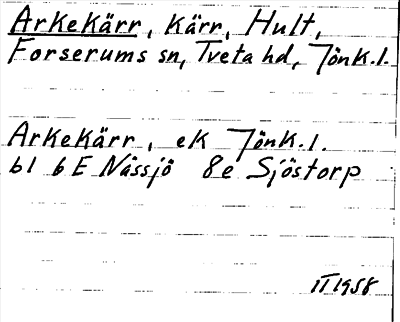 Arkekärr, kärr, Hult,
Forserums sn, Tveta hd, Jönk.l.
Arkekärr, ek Jönk.l.
bl 6E Nässjö 8e Sjöstorp
II 1958